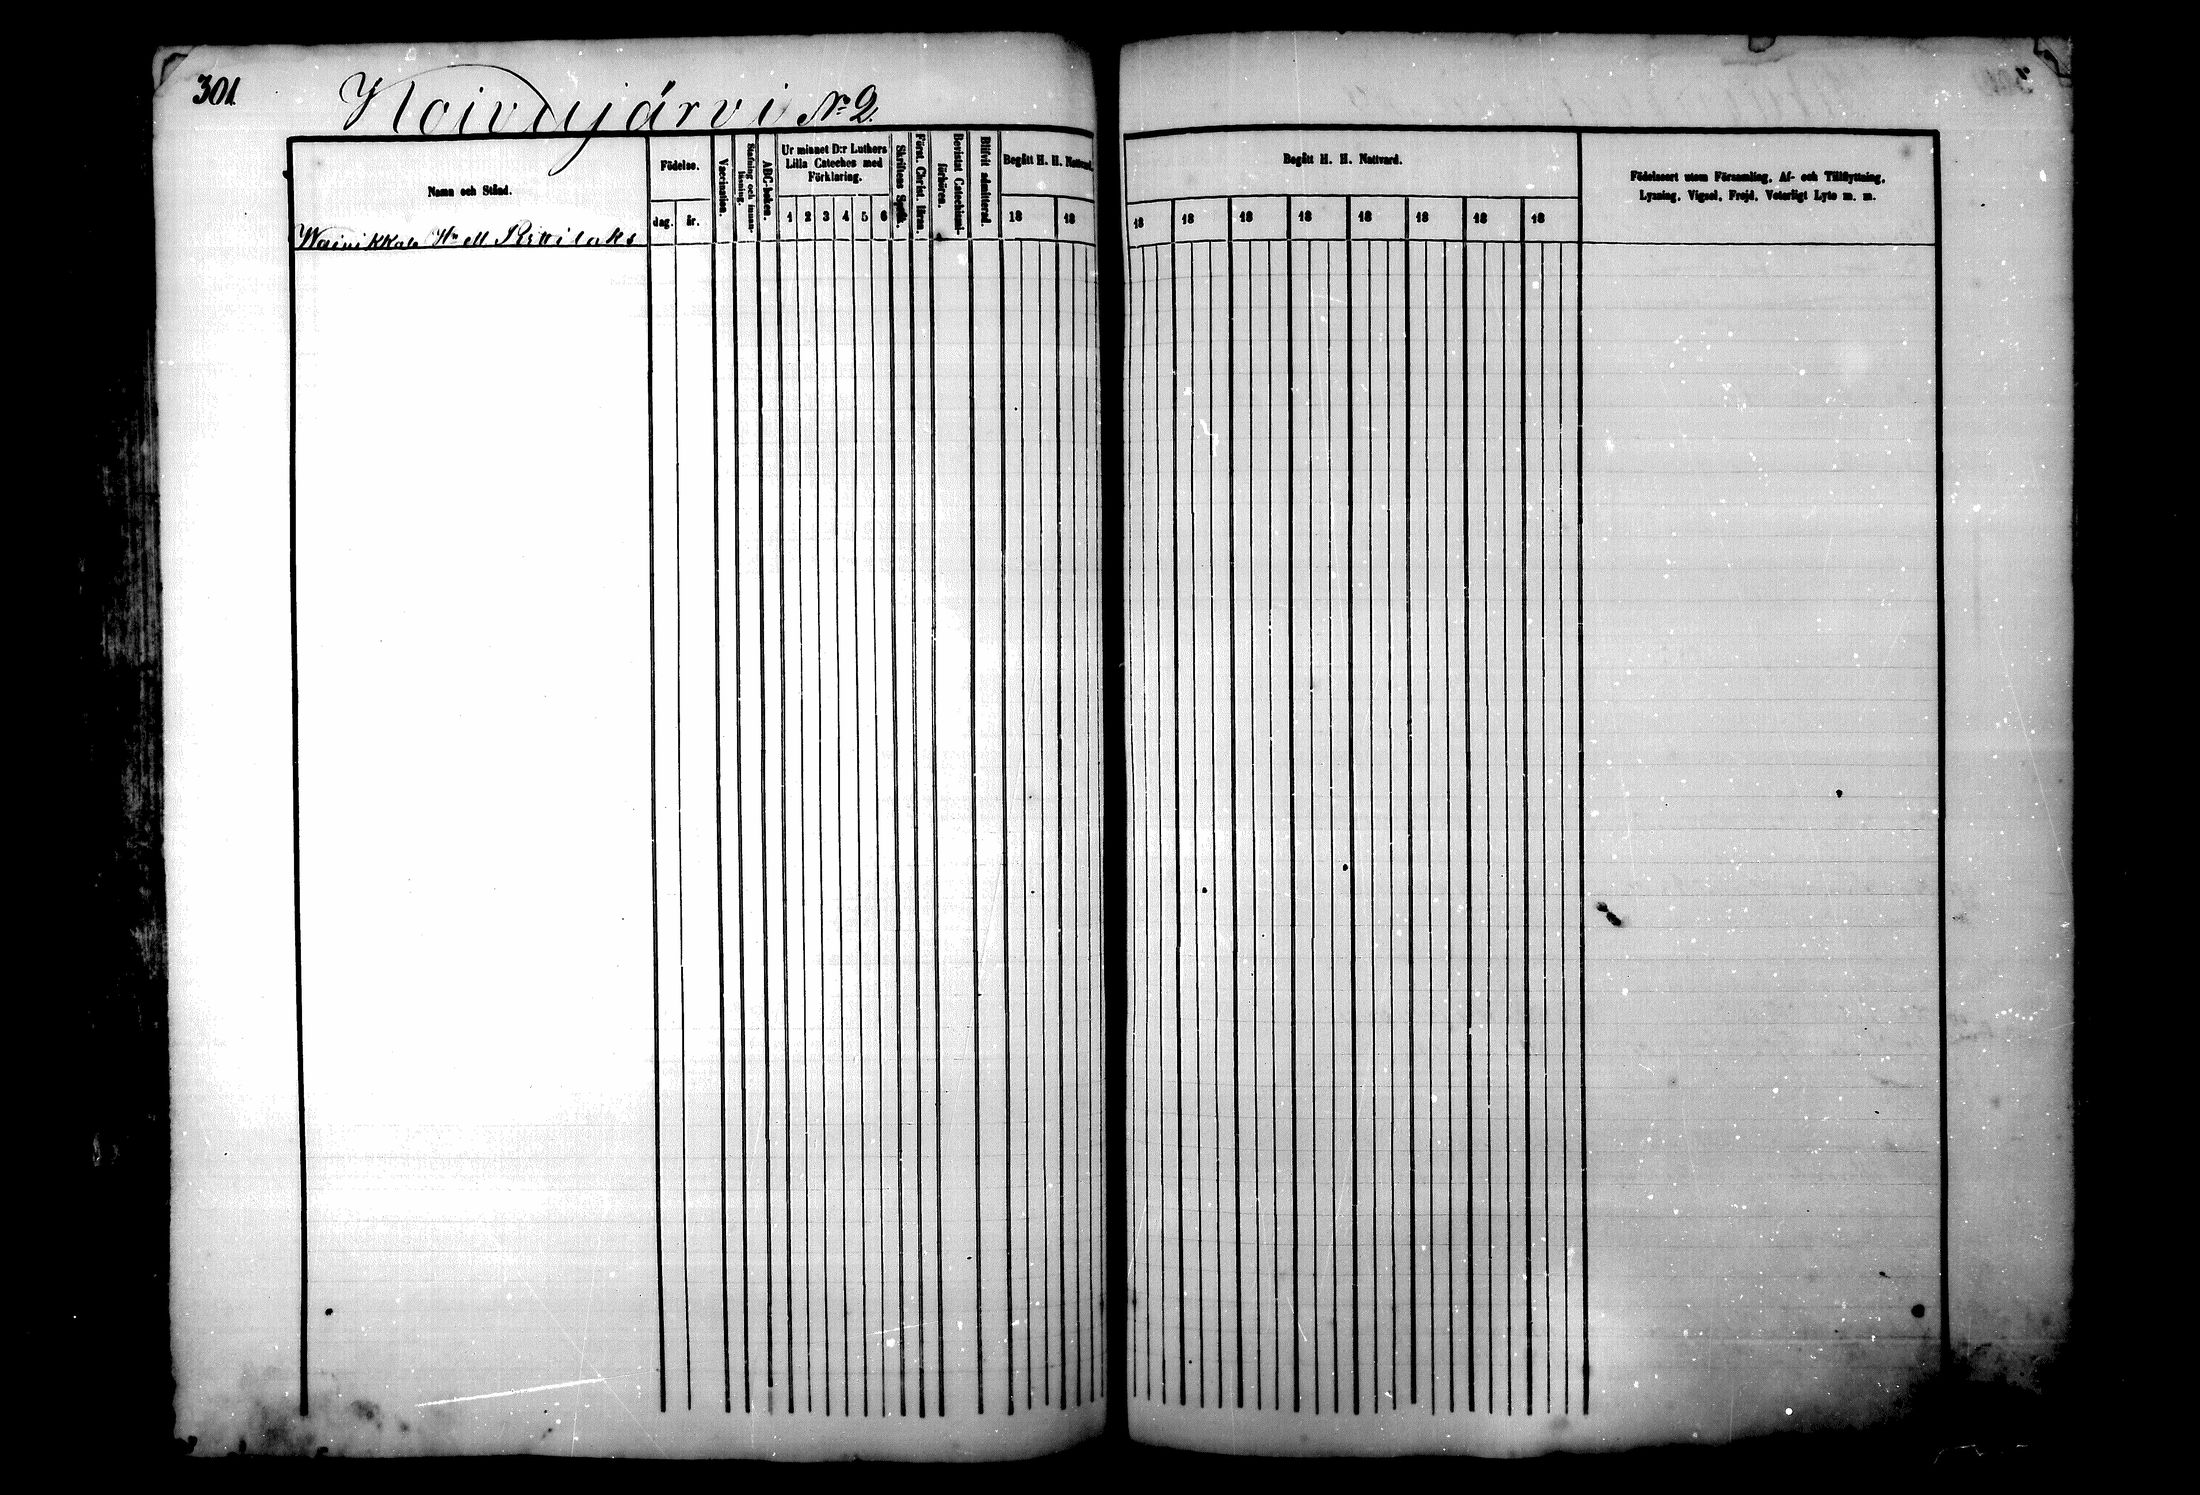 301
Koivujärvi No 2.
Namn och Stånd.
Födelse.
dag.
år.
Vaccination.
Stafning och innan-
läsning.
ABC-boken.
Ur minnet D:r Luthers
Lilla Cateches med
Förklaring.
1 2 3 4 5 6
Skriftens Språk.
Först. Christ. läran.
Bevistat Catechismi-
förhören.
Blifvit admitterad.
Begått H. H. Nattvard.
18 18
Begått H. H. Nattvard.
18 18 18 18 18 18 18 18
Födelseort utom Församling, Af- och Tillflyttning,
Lysning, Vigsel, Frejd, Veterligt Lyte m. m.
Wainikkala